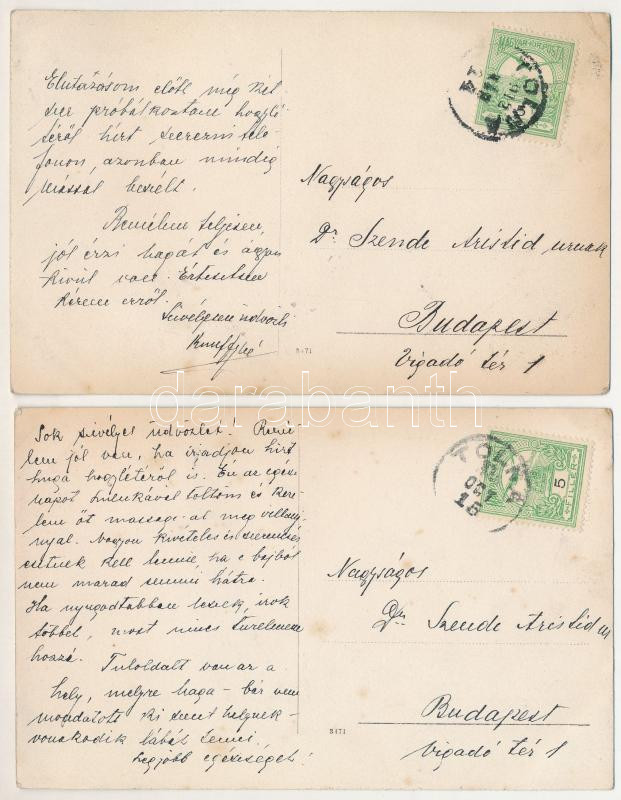 MAGYAR KIR. POSTA
TOLNA
Elutazásom előtt még két
szer próbálkoztam hogylé
téről hírt szerezni tele
fonon, azonban mindig
mással beszélt.
Remélem teljesen
jól érzi magát és ágyon
kívül van. Értesítsen
kérem erről.
Szívélyesen üdvözli
Nagyságos
Dr. Szende Aristid urnak
Budapest
Vigadó tér 1
S471
darabanth
Sok szívélyes üdvözlet! Remé-
lem jól van, ha írjadjon hírt
maga hogylétéről is. Én az egész
napot
töltöm és
lem őt massage-al meg villany
nyal. Nagyon kivételes és szerencsés
esetnek kell lennie ha e bajból
nem marad semmi hátra.
Ha nyugodtabban leszek, írok
többet, most nincs türelmem
hozzá. Túloldalt van az a
hely, melyre maga - bár nem
mondatott ki szent helynek -
vonakodik lábát tenni.
Legjobb egészséget!
TOLNA
OKT
15
5
FILLÉR
Nagyságos
Dr. Szende Aristid ur
Budapest
Vigadó tér 1
S471